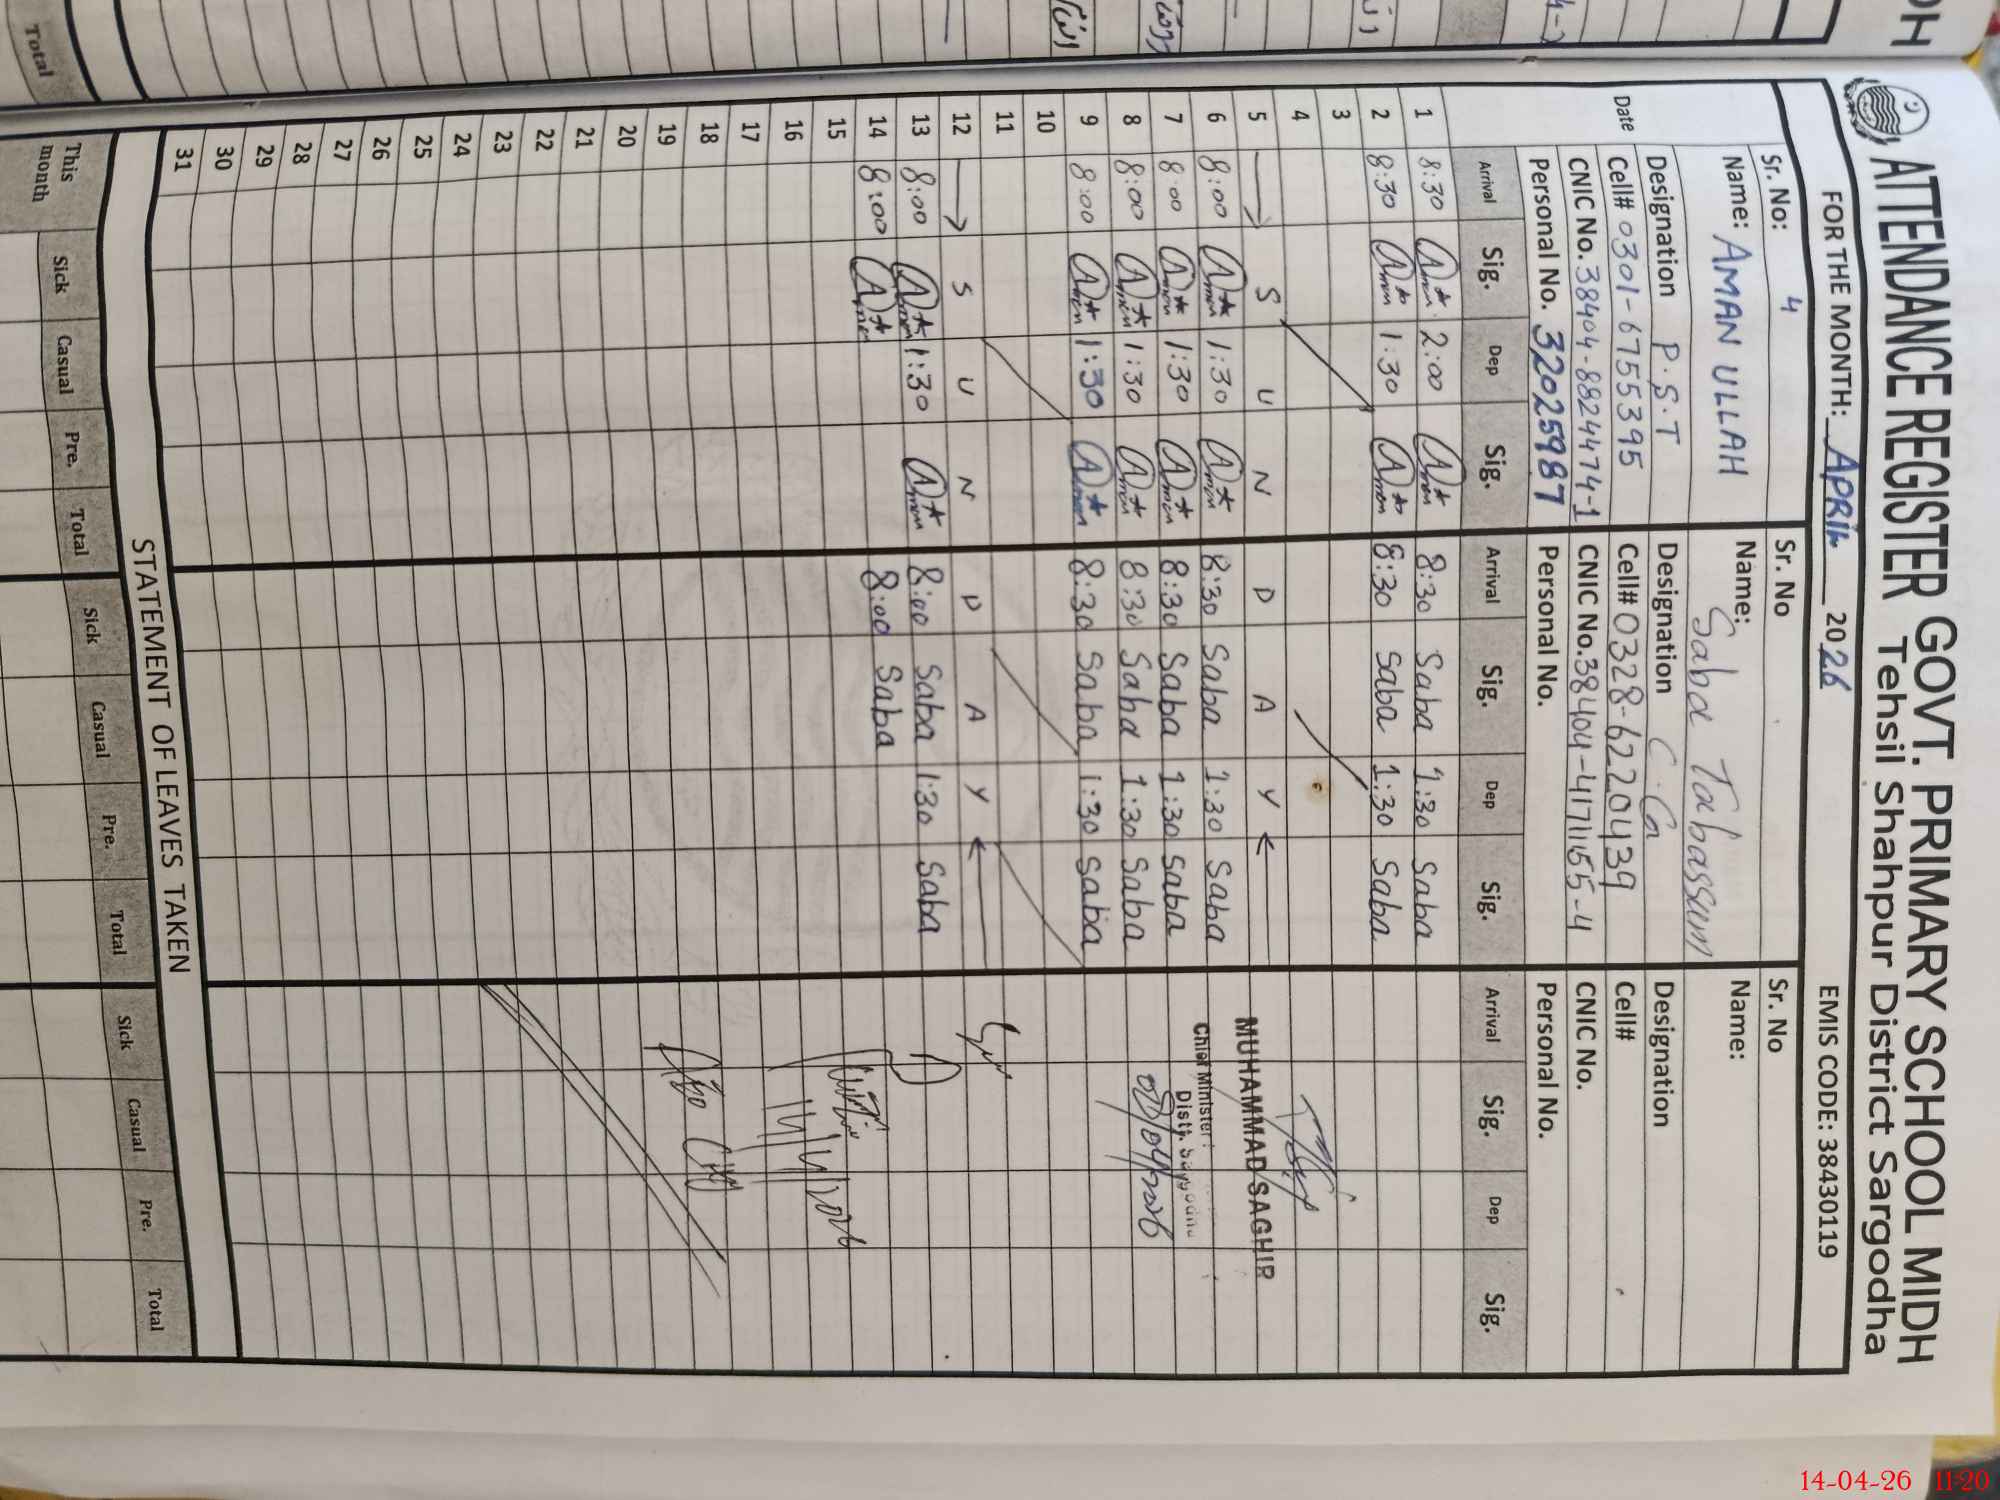 ATTENDANCE REGISTER GOVT. PRIMARY SCHOOL MIDH
Tehsil Shahpur District Sargodha
FOR THE MONTH: APRIL 2026 EMIS CODE: 38430119
Sr. No: 4
Name: AMAN ULLAH
Designation P.S.T
Cell# 0301-6755395
CNIC No. 38404-8824474-1
Personal No. 32025987
Sr. No
Name: Saba Tabassum
Designation
Cell# 0328-6220439
CNIC No. 38404-4171155-4
Personal No.
Sr. No
Name:
Designation
Cell#
CNIC No.
Personal No.
Date Arrival Sig. Dep Sig. Arrival Sig. Dep Sig. Arrival Sig. Dep Sig.
1 8:30 Aman 2:00 Aman 8:30 Saba 1:30 Saba
2 8:30 Aman 1:30 Aman 8:30 Saba 1:30 Saba
3
4
5 S U N D A Y
6 8:00 Aman 1:30 Aman 8:30 Saba 1:30 Saba
7 8:00 Aman 1:30 Aman 8:30 Saba 1:30 Saba
8 8:00 Aman 1:30 Aman 8:30 Saba 1:30 Saba
9 8:00 Aman 1:30 Aman 8:30 Saba 1:30 Saba
10
11
12 S U N D A Y
13 8:00 Aman 1:30 Aman 8:00 Saba 1:30 Saba
14 8:00 Aman 8:00 Saba
15
16
17
18
19
20
21
22
23
24
25
26
27
28
29
30
31
MUHAMMAD SAGHIR
Chief Minister
Distt. Sargodha
STATEMENT OF LEAVES TAKEN
This month Sick Casual Pre. Total Sick Casual Pre. Total Sick Casual Pre. Total
Total
14-04-26 11:20